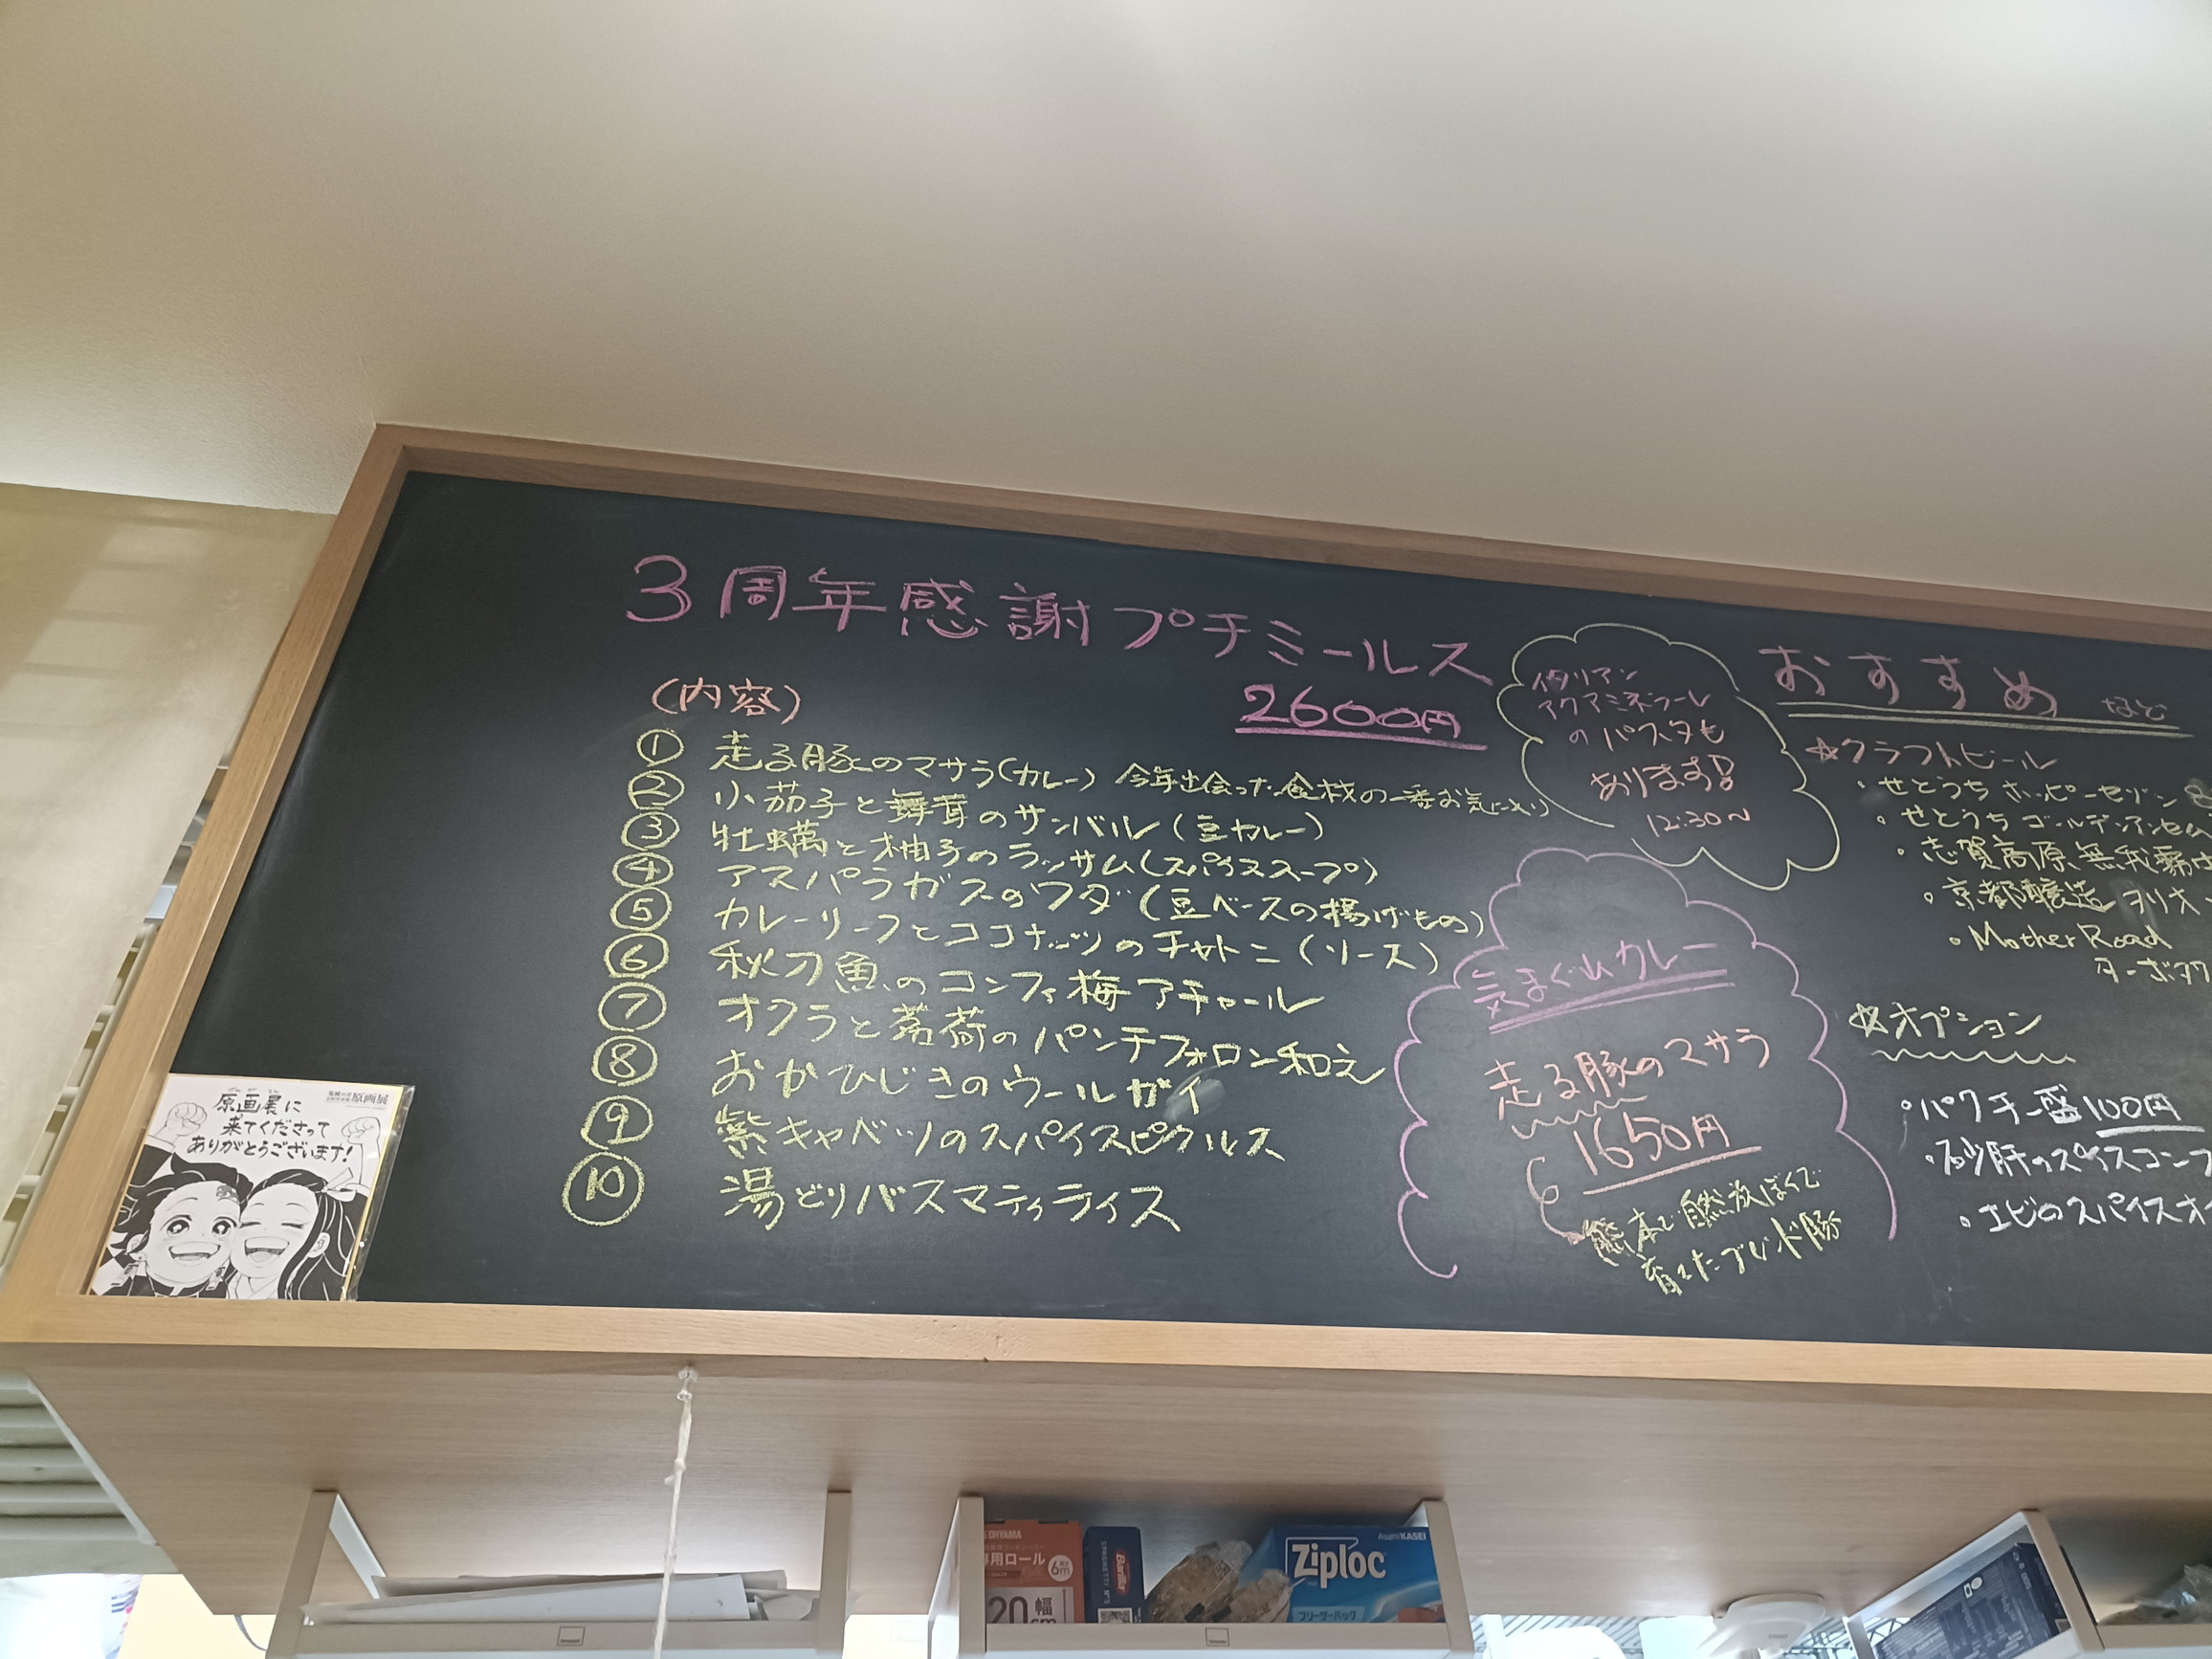 3周年感謝プチミールス
2600円
(内容)
① 走る豚のマサラ(カレー) 今年出会った食材の一番お気に入り)
② 小茄子と舞茸のサンバル(豆カレー)
③ 牡蠣と柚子のラッサム(スパイススープ)
④ アスパラガスのワダ(豆ベースの揚げもの)
⑤ カレーリーフとココナッツのチャトニ(ソース)
⑥ 秋刀魚のコンフィ梅アチャール
⑦ オクラと茗荷のパンチフォロン和え
⑧ おかひじきのウールガイ
⑨ 紫キャベツのスパイスピクルス
⑩ 湯どりバスマティライス
イタリアン
アクアミネラーレ
のパスタも
あります!!
12:30〜
気まぐれカレー
走る豚のマサラ
1650円
熊本で自然放ぼくで
育てたブランド豚
おすすめ など
☆クラフトビール
・せとうち ホッピーセゾン
・せとうち ゴールデンアンセム
・志賀高原 無我霧中
・京都醸造
・Mother Road
☆オプション
・パクチー盛 100円
・砂肝のスパイスコンフ
・エビのスパイスオ
原画展に
来てくださって
ありがとうございます!
原画展
OHYAMA
専用ロール
6m
20
幅
cm
Barilla
SPAGHETTI
AsahiKASEI
Ziploc
フリーザーバッグ